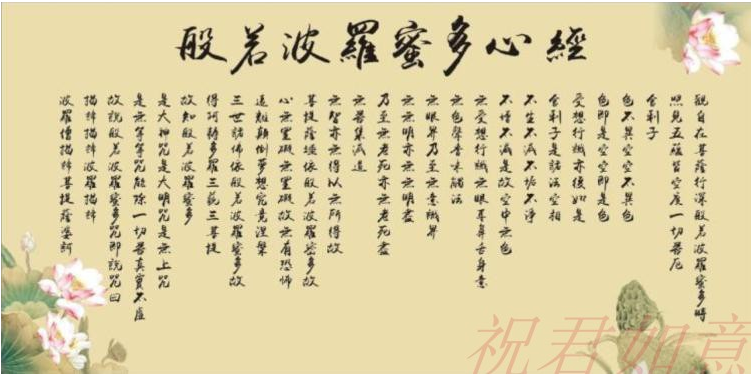 般若波羅蜜多心經
觀自在菩薩行深般若波羅蜜多時
照見五蘊皆空度一切苦厄
舍利子
色不異空空不異色
色即是空空即是色
受想行識亦復如是
舍利子是諸法空相
不生不滅不垢不淨
不增不減是故空中無色
無受想行識無眼耳鼻舌身意
無色聲香味觸法
無眼界乃至無意識界
無無明亦無無明盡
乃至無老死亦無老死盡
無苦集滅道
無智亦無得以無所得故
菩提薩埵依般若波羅蜜多故
心無罣礙無罣礙故無有恐怖
遠離顛倒夢想究竟涅槃
三世諸佛依般若波羅蜜多故
得阿耨多羅三藐三菩提
故知般若波羅蜜多
是大神咒是大明咒是無上咒
是無等等咒能除一切苦真實不虛
故說般若波羅蜜多咒即說咒曰
揭諦揭諦波羅揭諦
波羅僧揭諦菩提薩婆訶
祝君如意